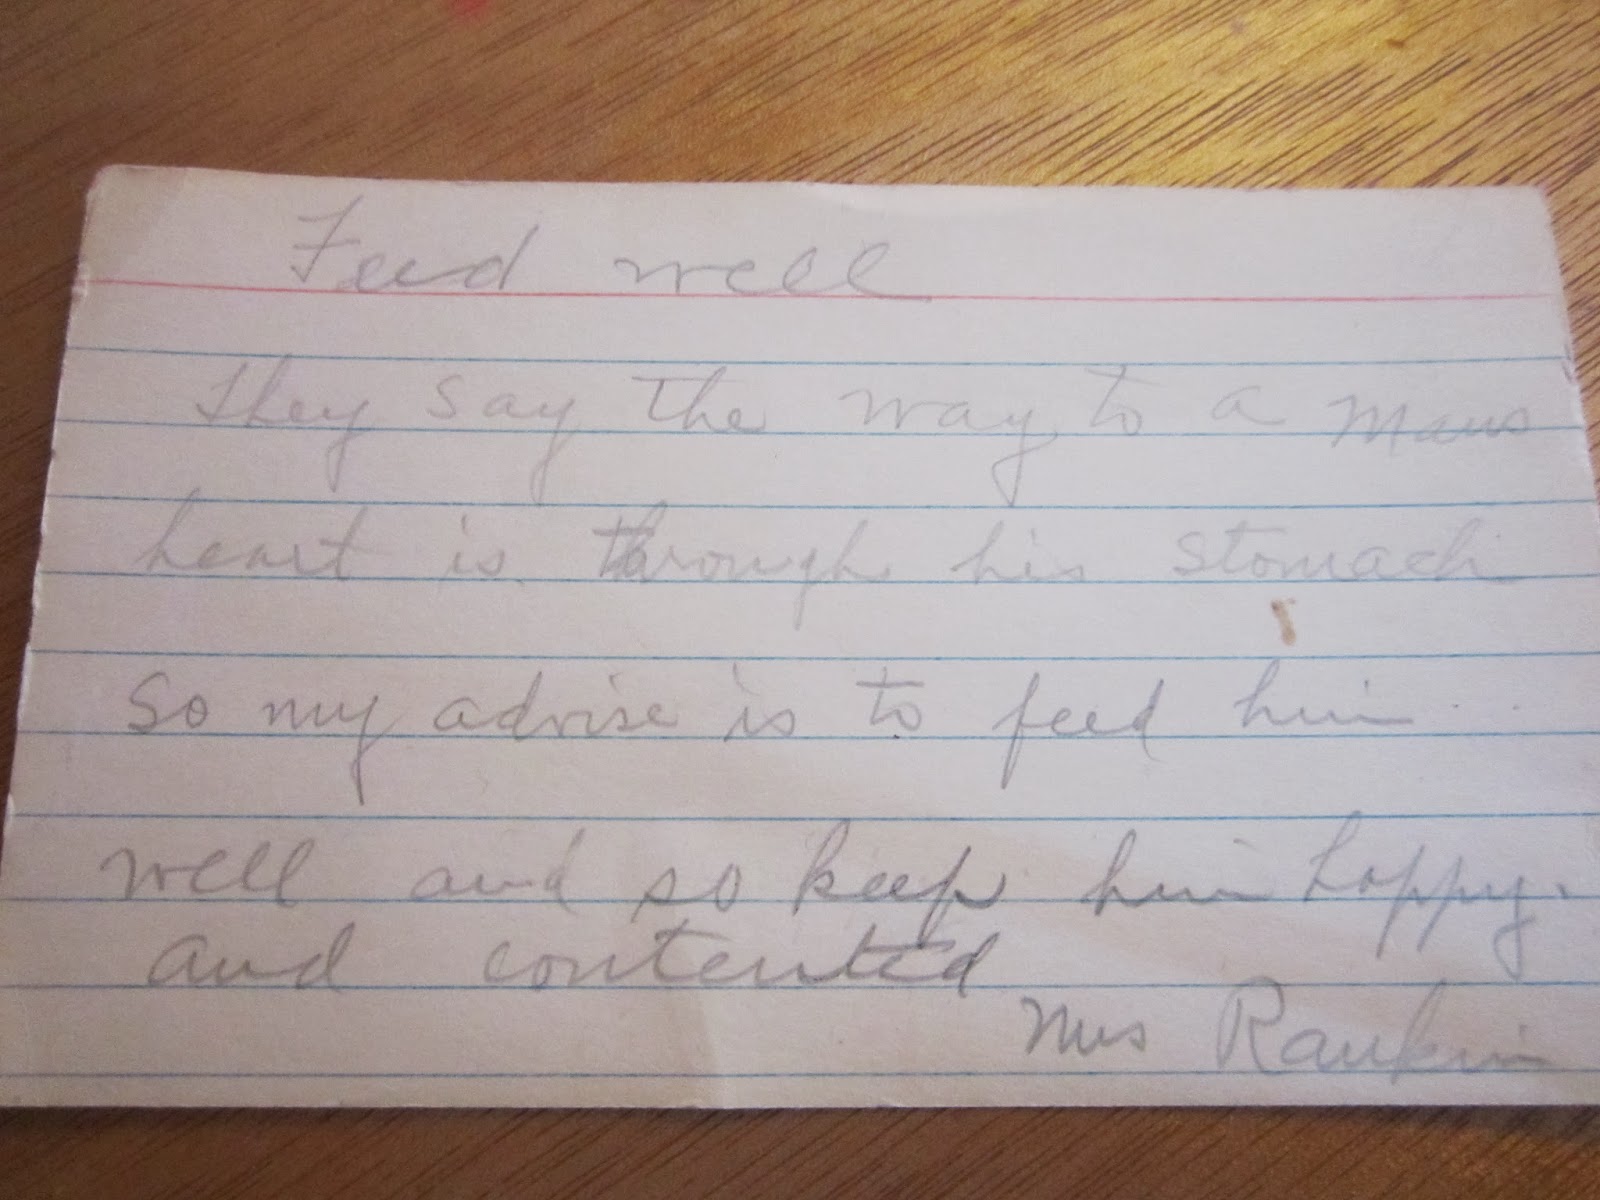 Feed well
They say the way to a mans
heart is through his stomach
So my advise is to feed him
well and so keep him happy.
and contented
Mrs Rankin